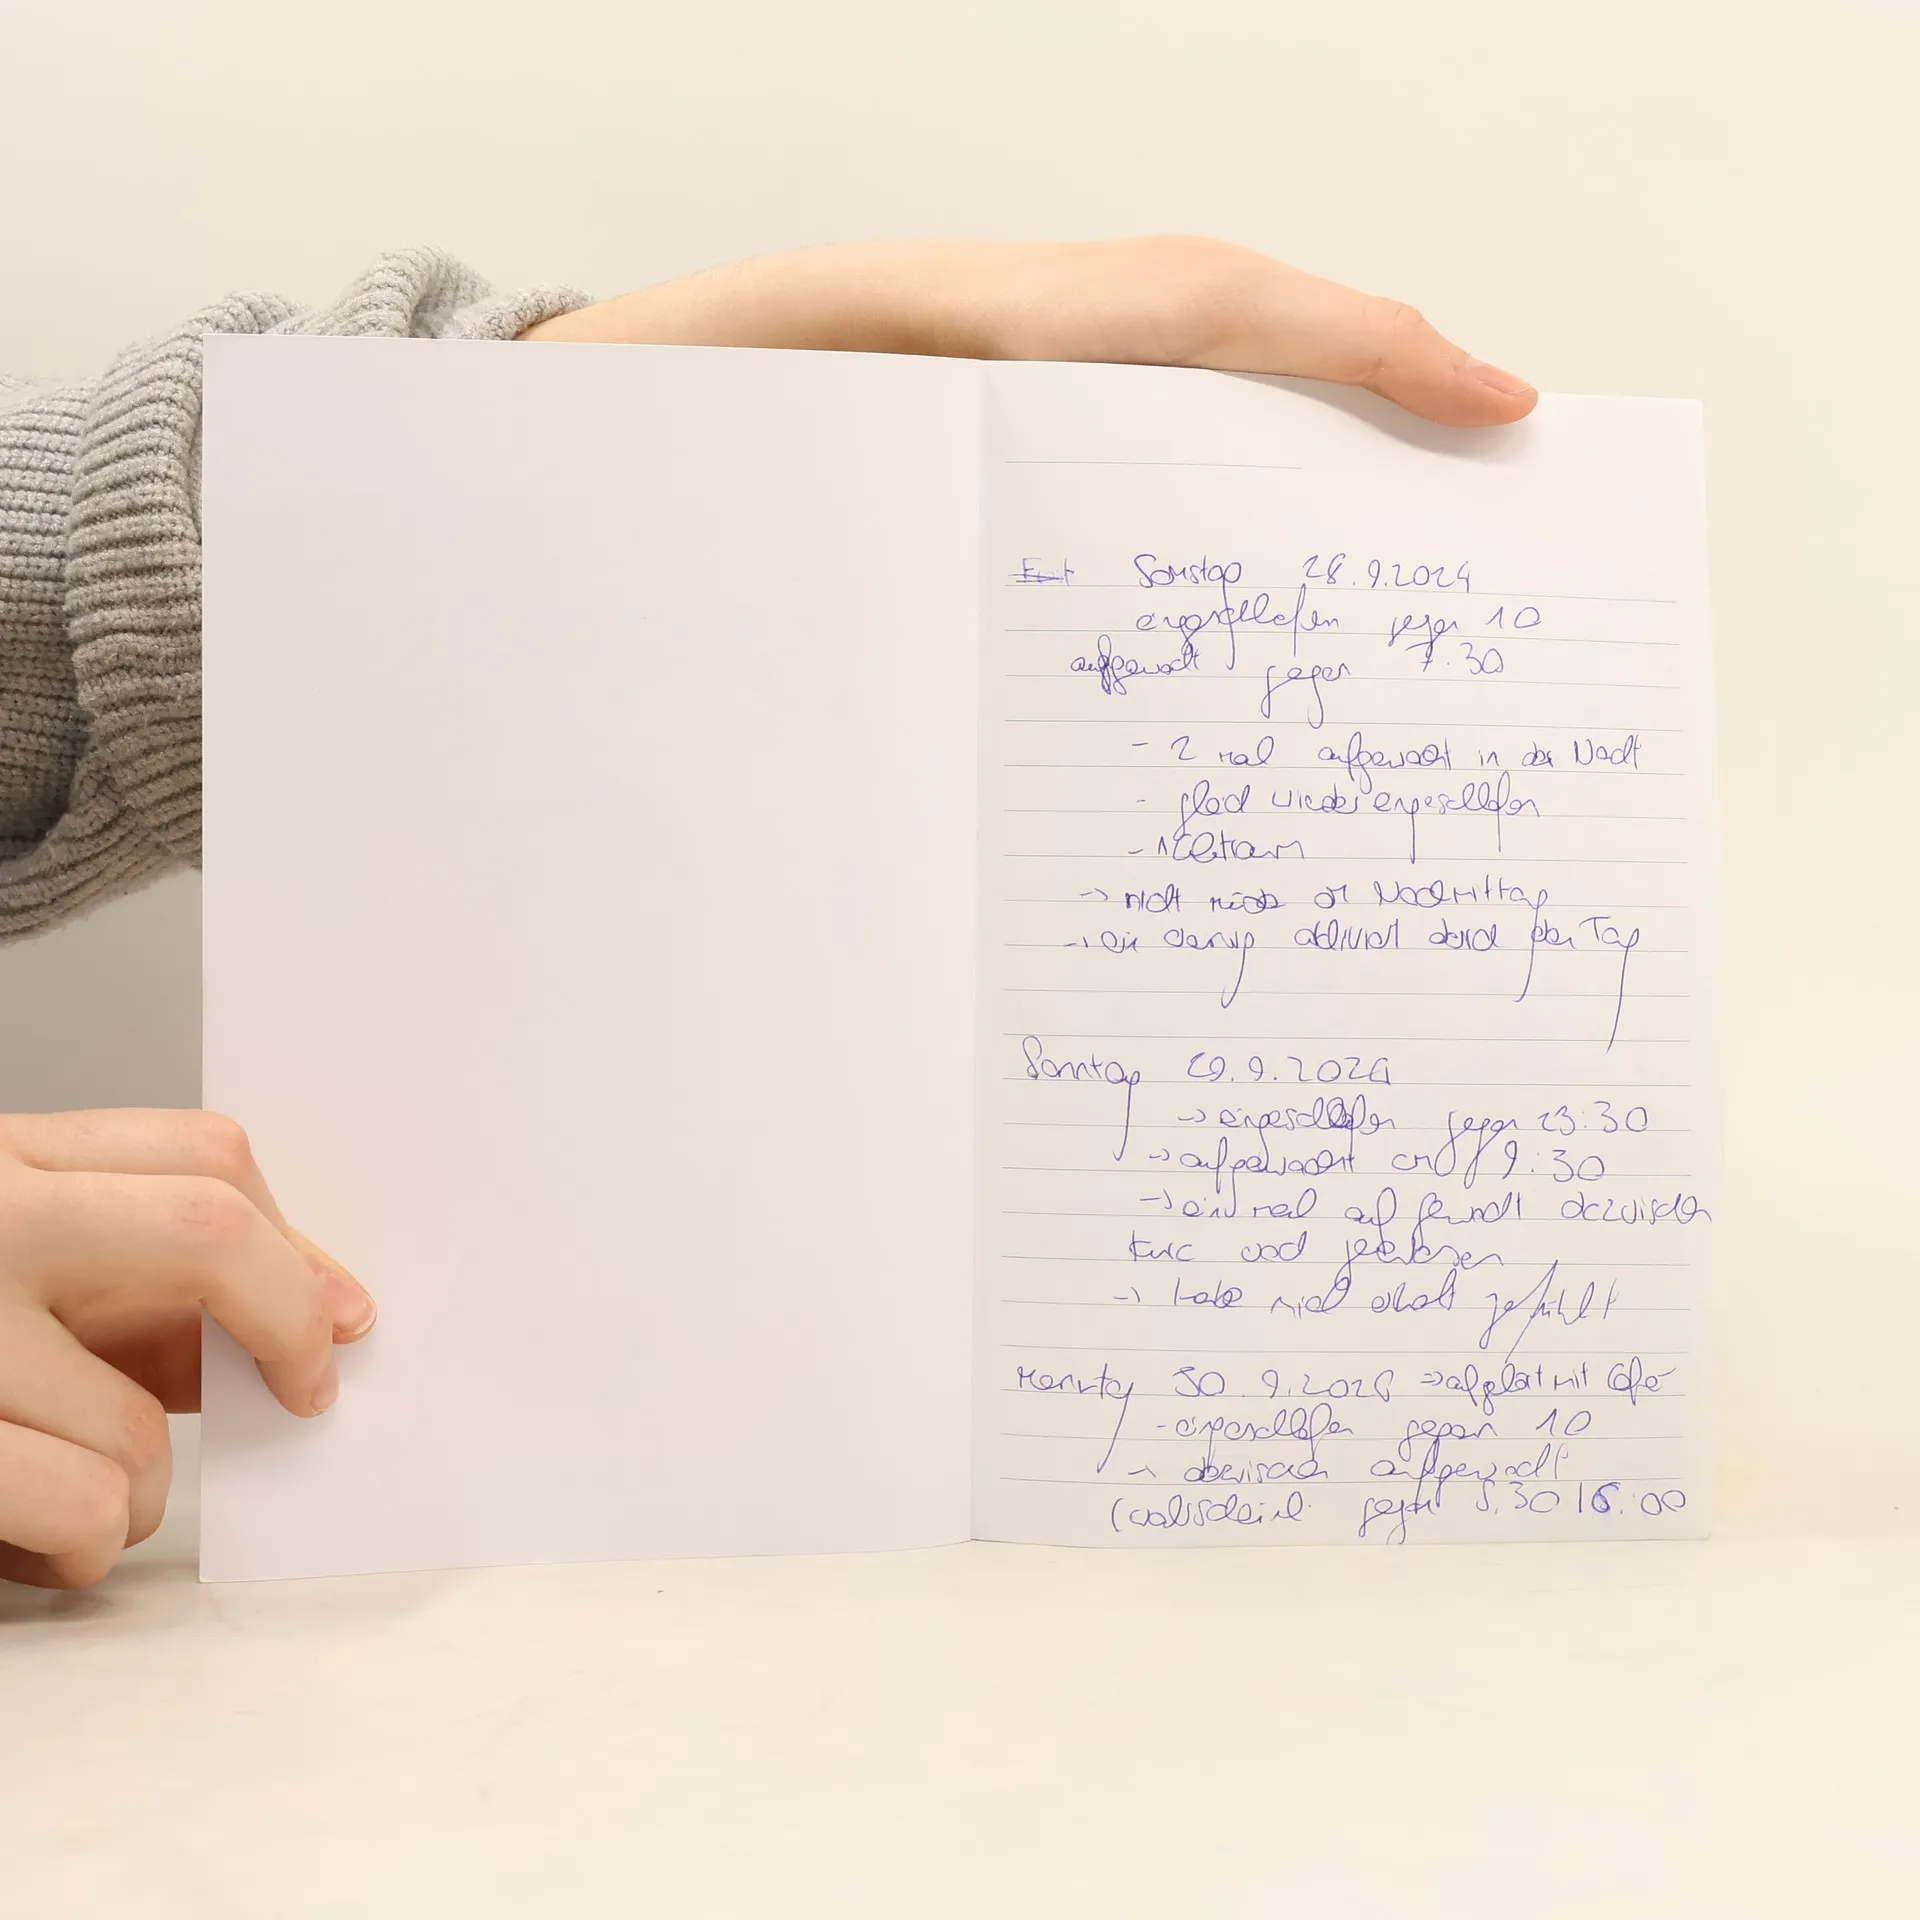 Samstag 28.9.2024
eingeschlafen gegen 10
aufgewacht gegen 7.30
- 2 mal aufgewacht in der Nacht
- gleich wieder eingeschlafen
- 1
→ nicht müde am Nachmittag
→ ein wenig aktiviert durch den Tag
Sonntag 29.9.2024
→ eingeschlafen gegen 23:30
→ aufgewacht um 9:30
→ ein mal aufgewacht dazwischen
kurz wach gewesen
→ habe mich erholt gefühlt
Montag 30.9.2024 → mit
- eingeschlafen gegen 10
→ aufgewacht
(wahrscheinl. gegen 5.30 / 6:00